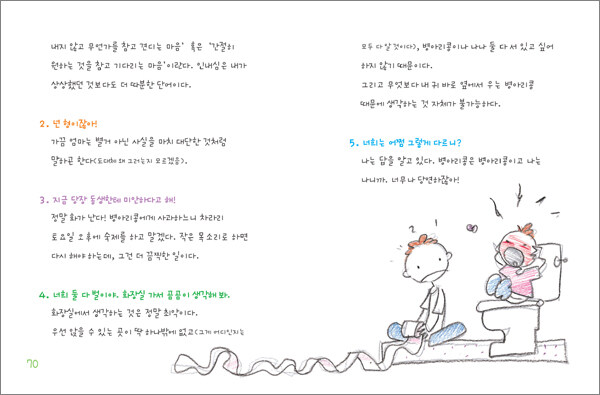 내지 않고 무언가를 참고 견디는 마음' 혹은 '간절히
원하는 것을 참고 기다리는 마음'이란다. 인내심은 내가
상상했던 것보다도 더 따분한 단어이다.
2. 넌 형이잖아!
가끔 엄마는 별거 아닌 사실을 마치 대단한 것처럼
말하곤 한다(도대체 왜 그러는지 모르겠음).
3. 지금 당장 동생한테 미안하다고 해!
정말 화가 난다! 병아리콩에게 사과하느니 차라리
토요일 오후에 숙제를 하고 말겠다. 작은 목소리로 하면
다시 해야 하는데, 그건 더 끔찍한 일이다.
4. 너희 둘 다 벌이야. 화장실 가서 곰곰이 생각해 봐.
화장실에서 생각하는 것은 정말 최악이다.
우선 앉을 수 있는 곳이 딱 하나밖에 없고(그게 어디인지는
70
모두 다 알 것이다), 병아리콩이나 나나 둘 다 서 있고 싶어
하지 않기 때문이다.
그리고 무엇보다 내 귀 바로 옆에서 우는 병아리콩
때문에 생각하는 것 자체가 불가능하다.
5. 너희는 어쩜 그렇게 다르니?
나는 답을 알고 있다. 병아리콩은 병아리콩이고 나는
나니까. 너무나 당연하잖아!
? !